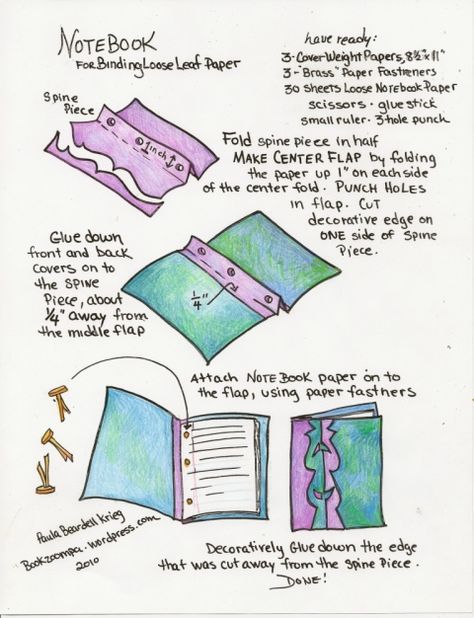 NOTEBOOK
FOR BINDING LOOSE LEAF PAPER
have ready:
3-COVER WEIGHT PAPERS, 8½"x11"
3-"BRASS" PAPER FASTENERS
30 SHEETS LOOSE NOTEBOOK PAPER
scissors - glue stick
small ruler - 3 hole punch
SPINE
PIECE
1 inch
FOLD spine piece in half
MAKE CENTER FLAP by folding
the paper up 1" on each side
of the center fold. PUNCH HOLES
in flap. CUT
decorative edge on
ONE side of SPINE
PIECE.
Glue down
front and back
covers on to
the SPINE
PIECE, about
¼" away from
the middle flap
¼"
Attach NOTEBOOK paper on to
the flap, using paper fastners
Paula Beardell Krieg
Bookzoompa.wordpress.com
2010
Decoratively Glue down the edge
that was cut away from the spine piece.
DONE!